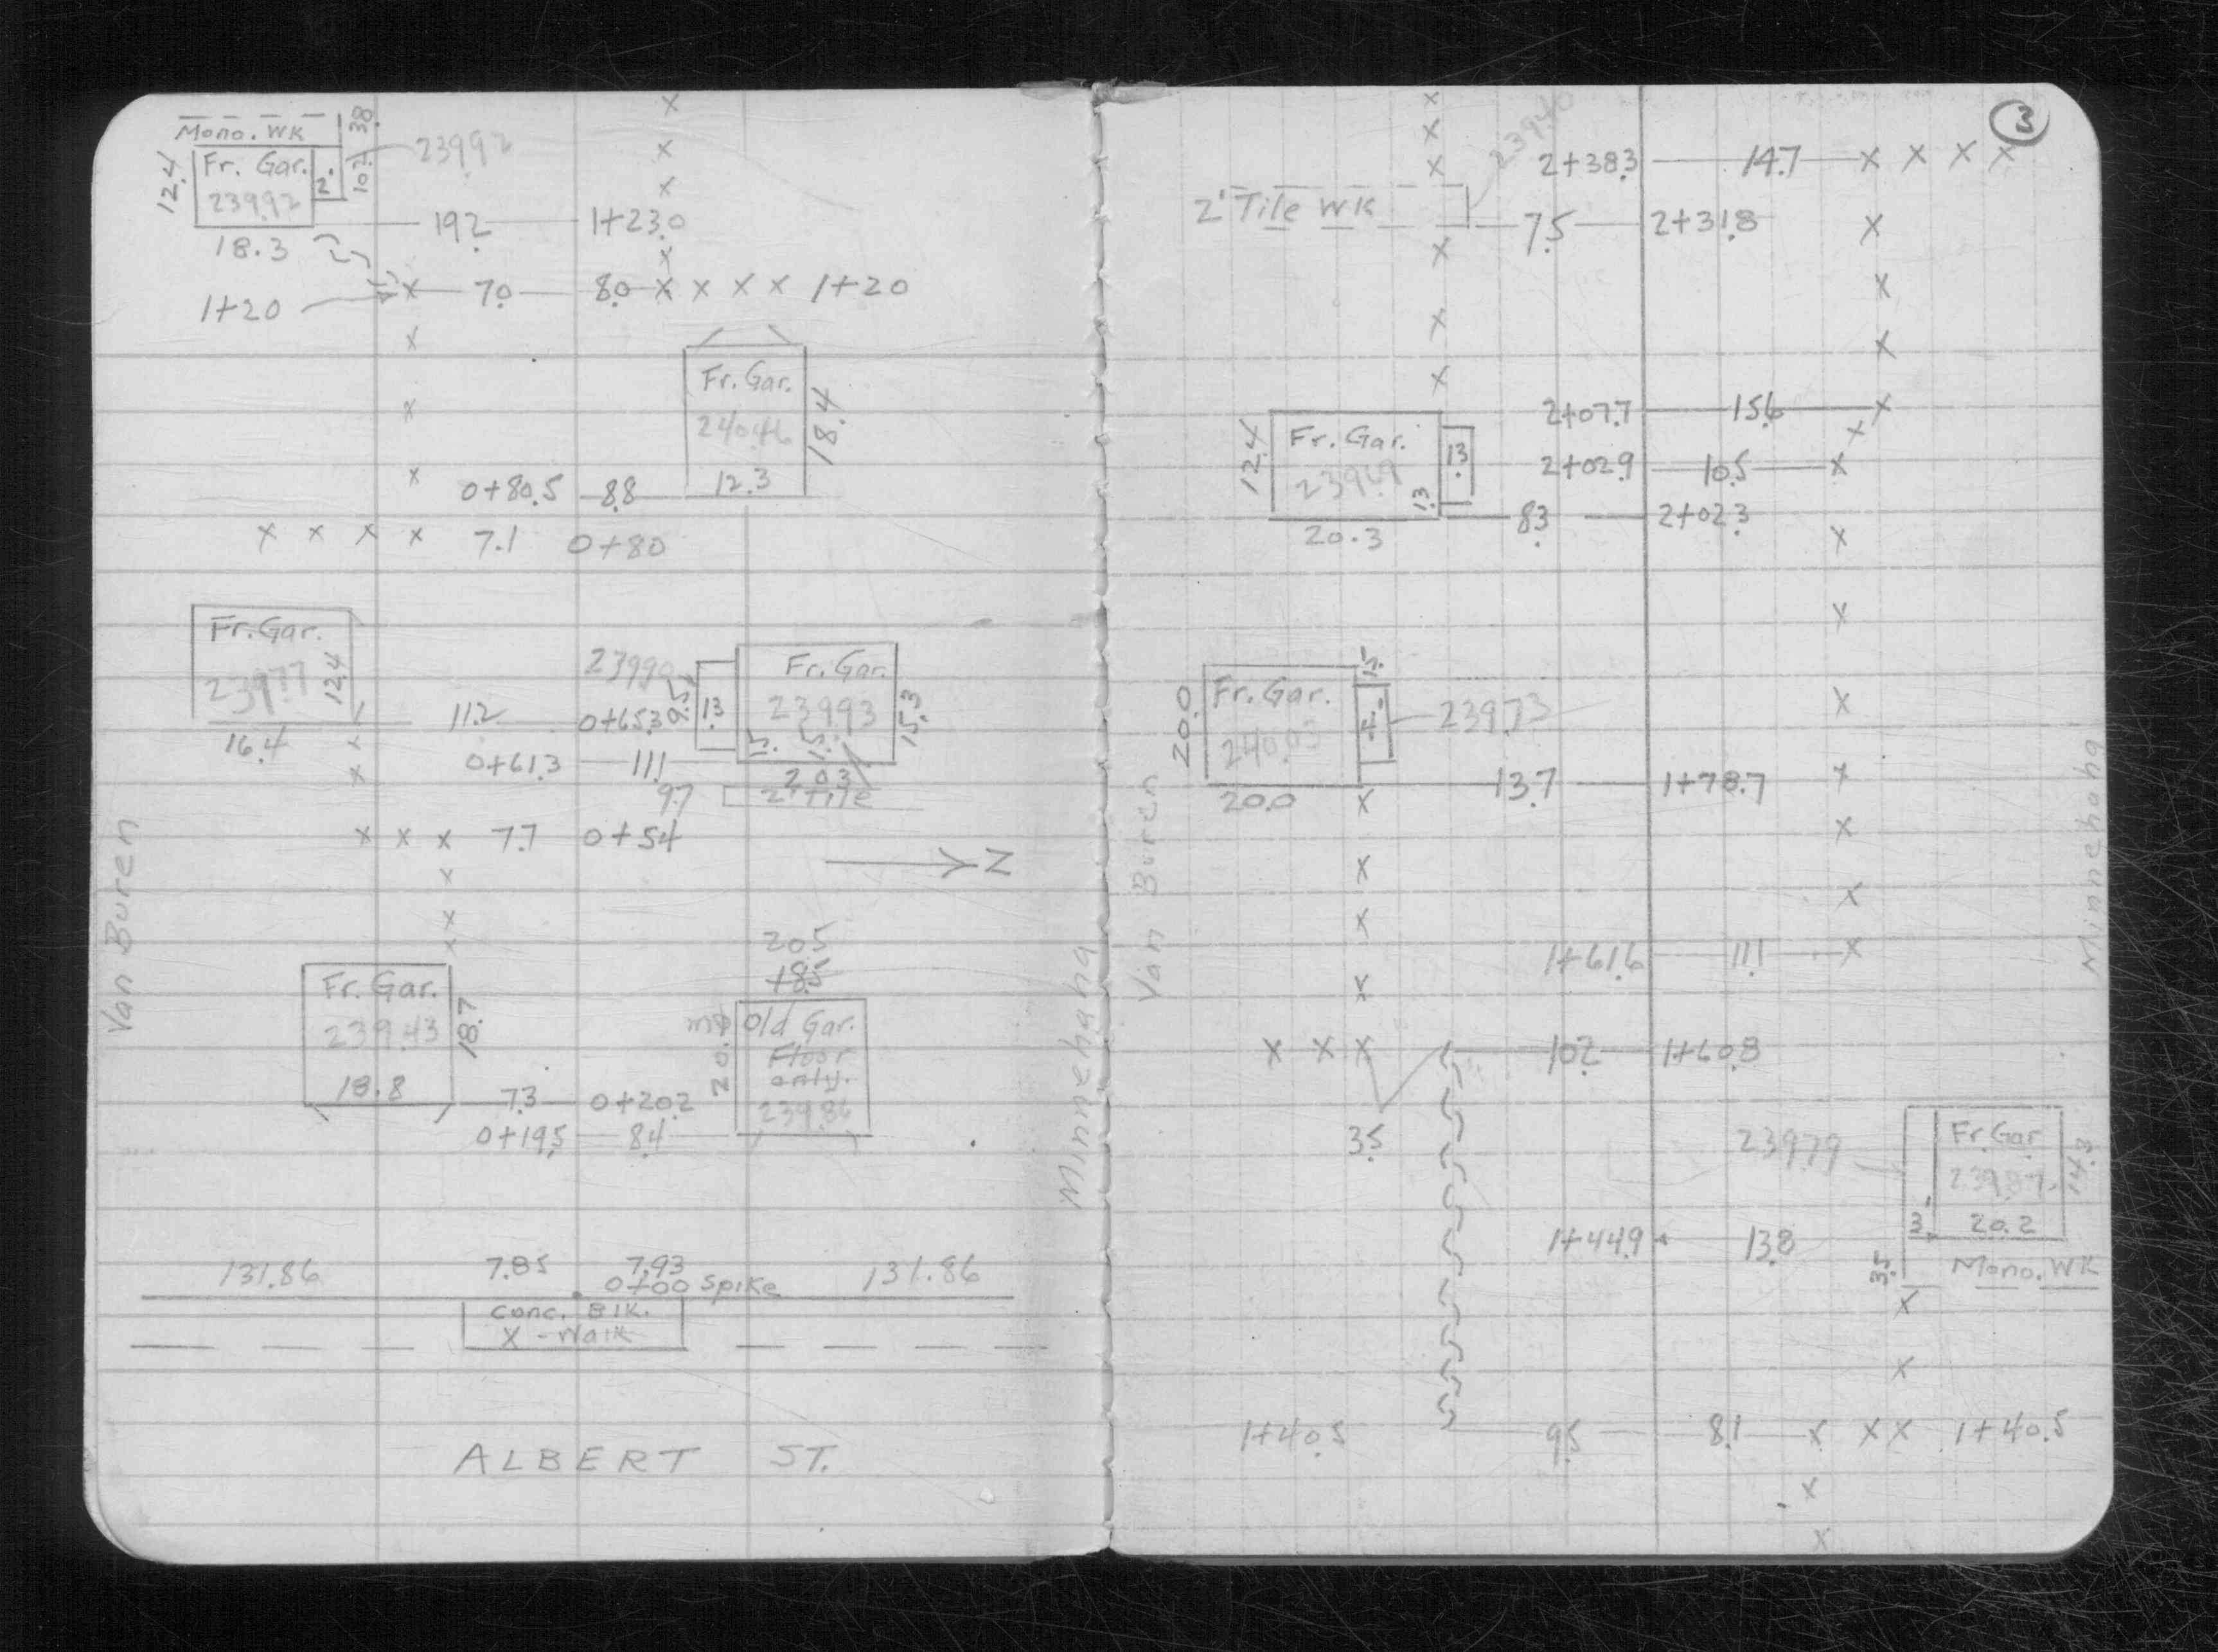 Mono. WK 38.
12.4 Fr. Gar. 2' 10.2 239.92
239.92
18.3
19.2 1+23.0
1+20 x 7.0 8.0 x x x x 1+20
Fr. Gar.
240.46 18.4
12.3
0+80.5 8.8
x x x x 7.1 0+80
Fr. Gar.
239.77 12.4
16.4
239.90 9.5 13. Fr. Gar.
239.93 15.3
1.5 1.5
20.3
11.2 0+65.3
0+61.3 11.1
9.7 2' Tile
x x x 7.7 0+54
N
Van Buren
Minnehaha
Fr. Gar.
239.43 18.7
18.8
20.5
+8.5
20.0 Old Gar.
Floor
only.
239.86
7.3 0+20.2
0+19.5 8.4
131.86 7.85 7.93 131.86
0+00 Spike
Conc. Blk.
X-Walk
ALBERT ST.
3
239.40
2+38.3 14.7 x x x x
2' Tile WK 7.5 2+31.8
2+07.7 15.6 x
12.4 Fr. Gar. 13.
239.49 1.3
20.3
2+02.9 10.5 x
8.3 2+02.3
20.0 Fr. Gar. 4. 239.73
240.03
20.0
13.7 1+78.7
Van Buren
Minnehaha
1+61.6 11.1 x
x x x 10.2 1+60.8
3.5
239.79 Fr. Gar.
239.87 14.3
3' 20.2
1+44.9 13.8
3.5 Mono. WK
1+40.5 9.5 8.1 x x x 1+40.5